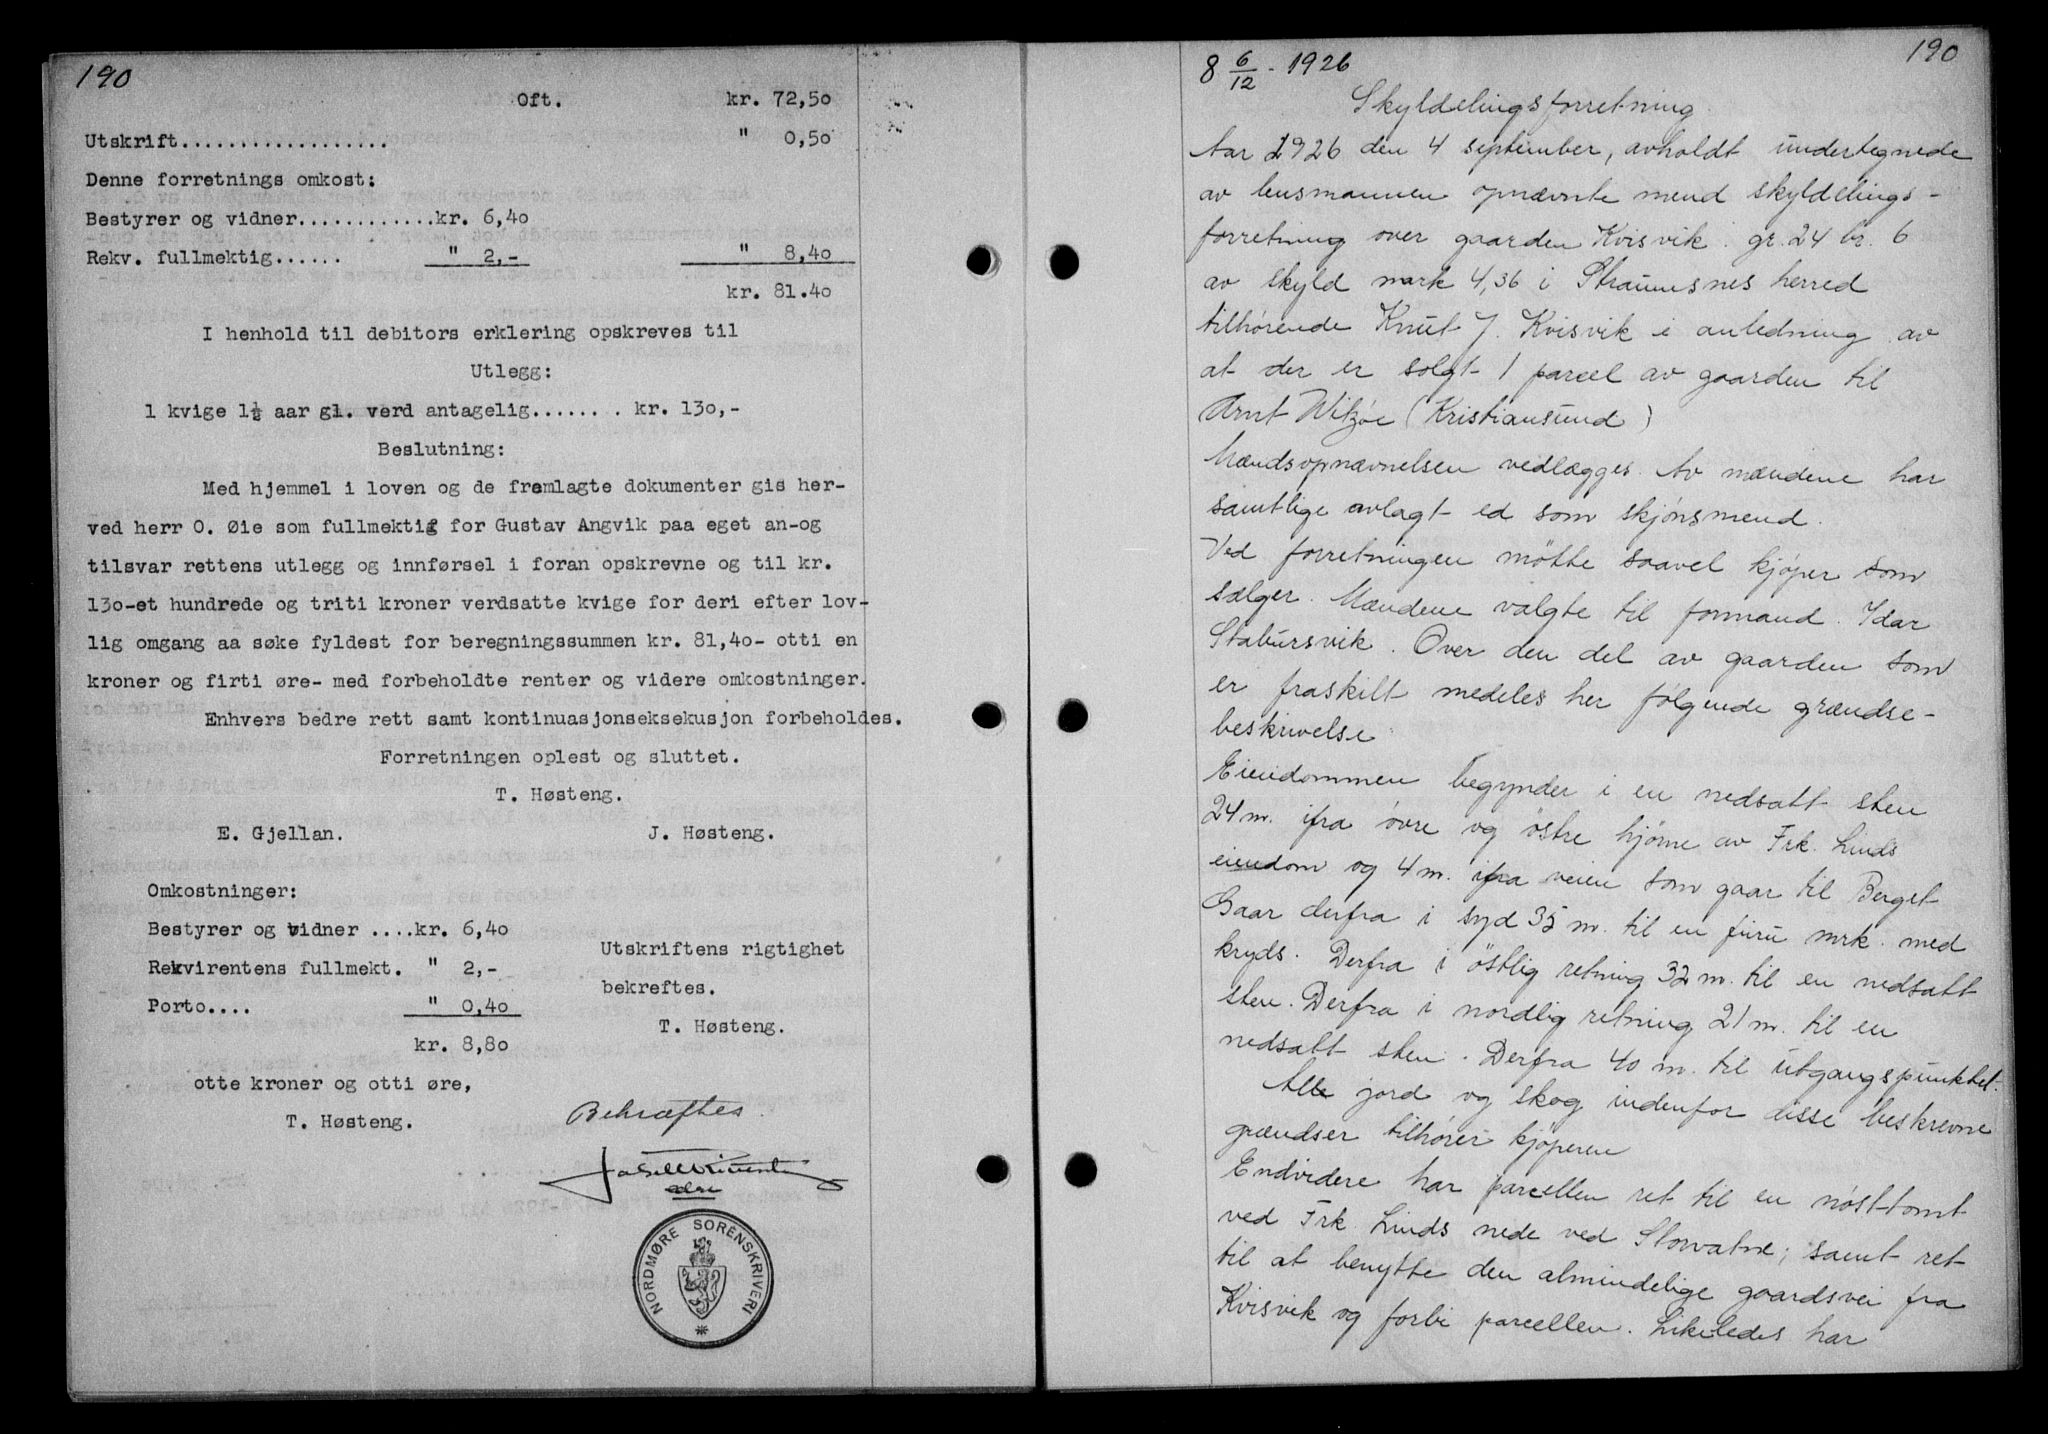 190
Oft. kr. 72,50
Utskrift.................. " 0,50
Denne forretnings omkost:
Bestyrer og vidner............kr. 6,40
Rekv. fullmektig...... " 2,- " 8,40
kr. 81.40
I henhold til debitors erklering opskreves til
Utlegg:
1 kvige 1½ aar gl. verd antagelig........ kr. 130,-
Beslutning:
Med hjemmel i loven og de fremlagte dokumenter gis her-
ved herr O. Øie som fullmektig for Gustav Angvik paa eget an-og
tilsvar rettens utlegg og innførsel i foran opskrevne og til kr.
130-et hundrede og triti kroner verdsatte kvige for deri efter lov-
lig omgang aa søke fyldest for beregningssummen kr. 81,40- otti en
kroner og firti øre- med forbeholdte renter og videre omkostninger.
Enhvers bedre rett samt kontinuasjonseksekusjon forbeholdes.
Forretningen oplest og sluttet.
T. Høsteng.
E. Gjellan. J. Høsteng.
Omkostninger:
Bestyrer og vidner ....kr. 6,40
Rekvirentens fullmekt. " 2,-
Porto.... " 0,40
kr. 8,80
otte kroner og otti øre,
T. Høsteng.
Utskriftens rigtighet
bekreftes.
T. Høsteng.
Bekræftes
NORDMØRE SORENSKRIVERI
190
8 6/12 - 1926
Skyldelingsforretning
Aar 1926 den 4 september, avholdt undertegnede
av lensmannen opnævnte mend skyldelings-
forretning over gaarden Kvisvik gr. 24 br. 6
av skyld mark 4,36 i Straumsnes herred
tilhørende Knut J. Kvisvik i anledning av
at der er solgt 1 parcel av gaarden til
Arnt Witzøe (Kristiansund)
Mændsopnævnelsen vedlægges. Av mændene har
samtlige avlagt ed som skjønsmend.
Ved forretningen møtte saavel kjøper som
sælger. Mændene valgte til formand. Idar
Stabursvik. Over den del av gaarden som
er fraskilt medeles her følgende grændse-
beskrivelse
Eiendommen begynder i en nedsatt sten
24 m. ifra øvre og østre hjørne av Frk. Linds
eiendom og 4 m. ifra veien som gaar til Berget
Gaar derfra i syd 35 m. til en furu mrk. med
kryds. Derfra i østlig retning 32 m. til en nedsatt
sten. Derfra i nordlig retning 21 m. til en
nedsatt sten. Derfra 40 m. til utgangspunktet.
Alle jord og skog indenfor disse beskrevne
grændser tilhører kjøperen
Endvidere har parcellen ret til en nøsttomt
ved Frk. Linds nede ved Storvatne; samt ret
til at benytte den almindelige gaardsvei fra
Kvisvik og forbi parcellen. Likeledes har